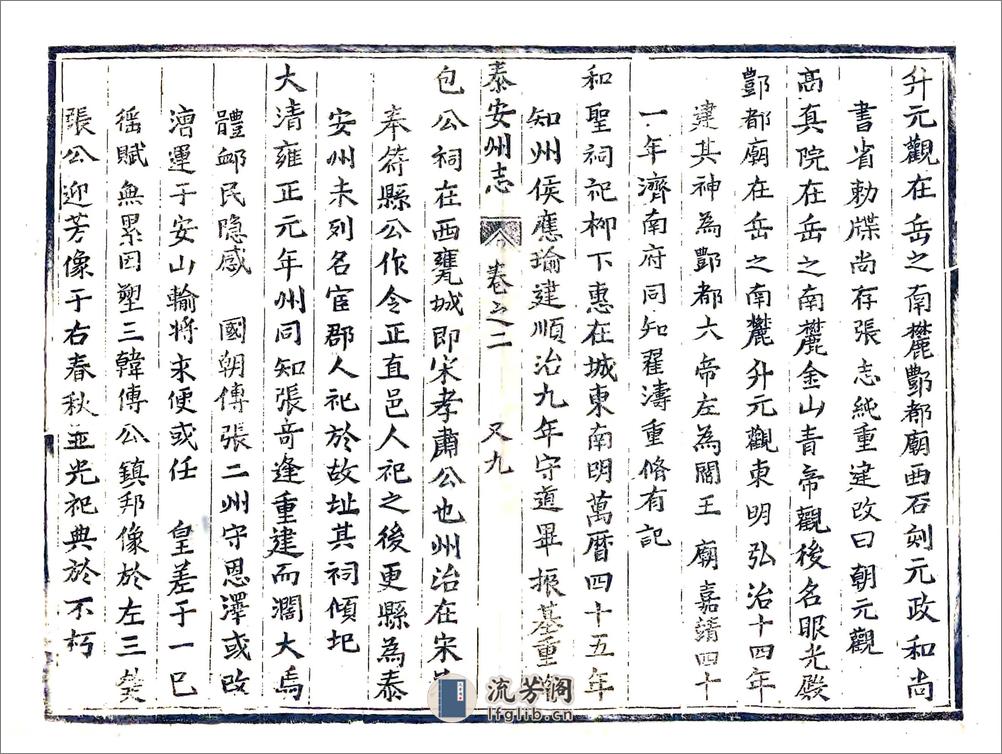 升元觀在岳之南麓酆都廟西石刻元政和尚
書省勅牒尚存張志純重建改曰朝元觀
高真院在岳之南麓金山青帝觀後名眼光殿
酆都廟在岳之南麓升元觀東明弘治十四年
建其神為酆都大帝左為閻王廟嘉靖四十
一年濟南府同知翟濤重脩有記
和聖祠祀柳下惠在城東南明萬曆四十五年
知州侯應瑜建順治九年守道畢振基重
泰安州志 卷之二 又九
包公祠在西甕城即宋孝肅公也州治在宋
奉符縣公作令正直邑人祀之後更縣為泰
安州未列名宦郡人祀於故址其祠傾圮
大清雍正元年州同知張奇逢重建而濶大焉
體邮民隐感 國朝傅張二州守恩澤或改
漕運于安山輸將求便或任 皇差于一已
徭賦無累因塑三韓傅公鎮邦像於左三韓
張公迎芳像于右春秋並光祀典於不朽
流芳閣
lfglib.cn